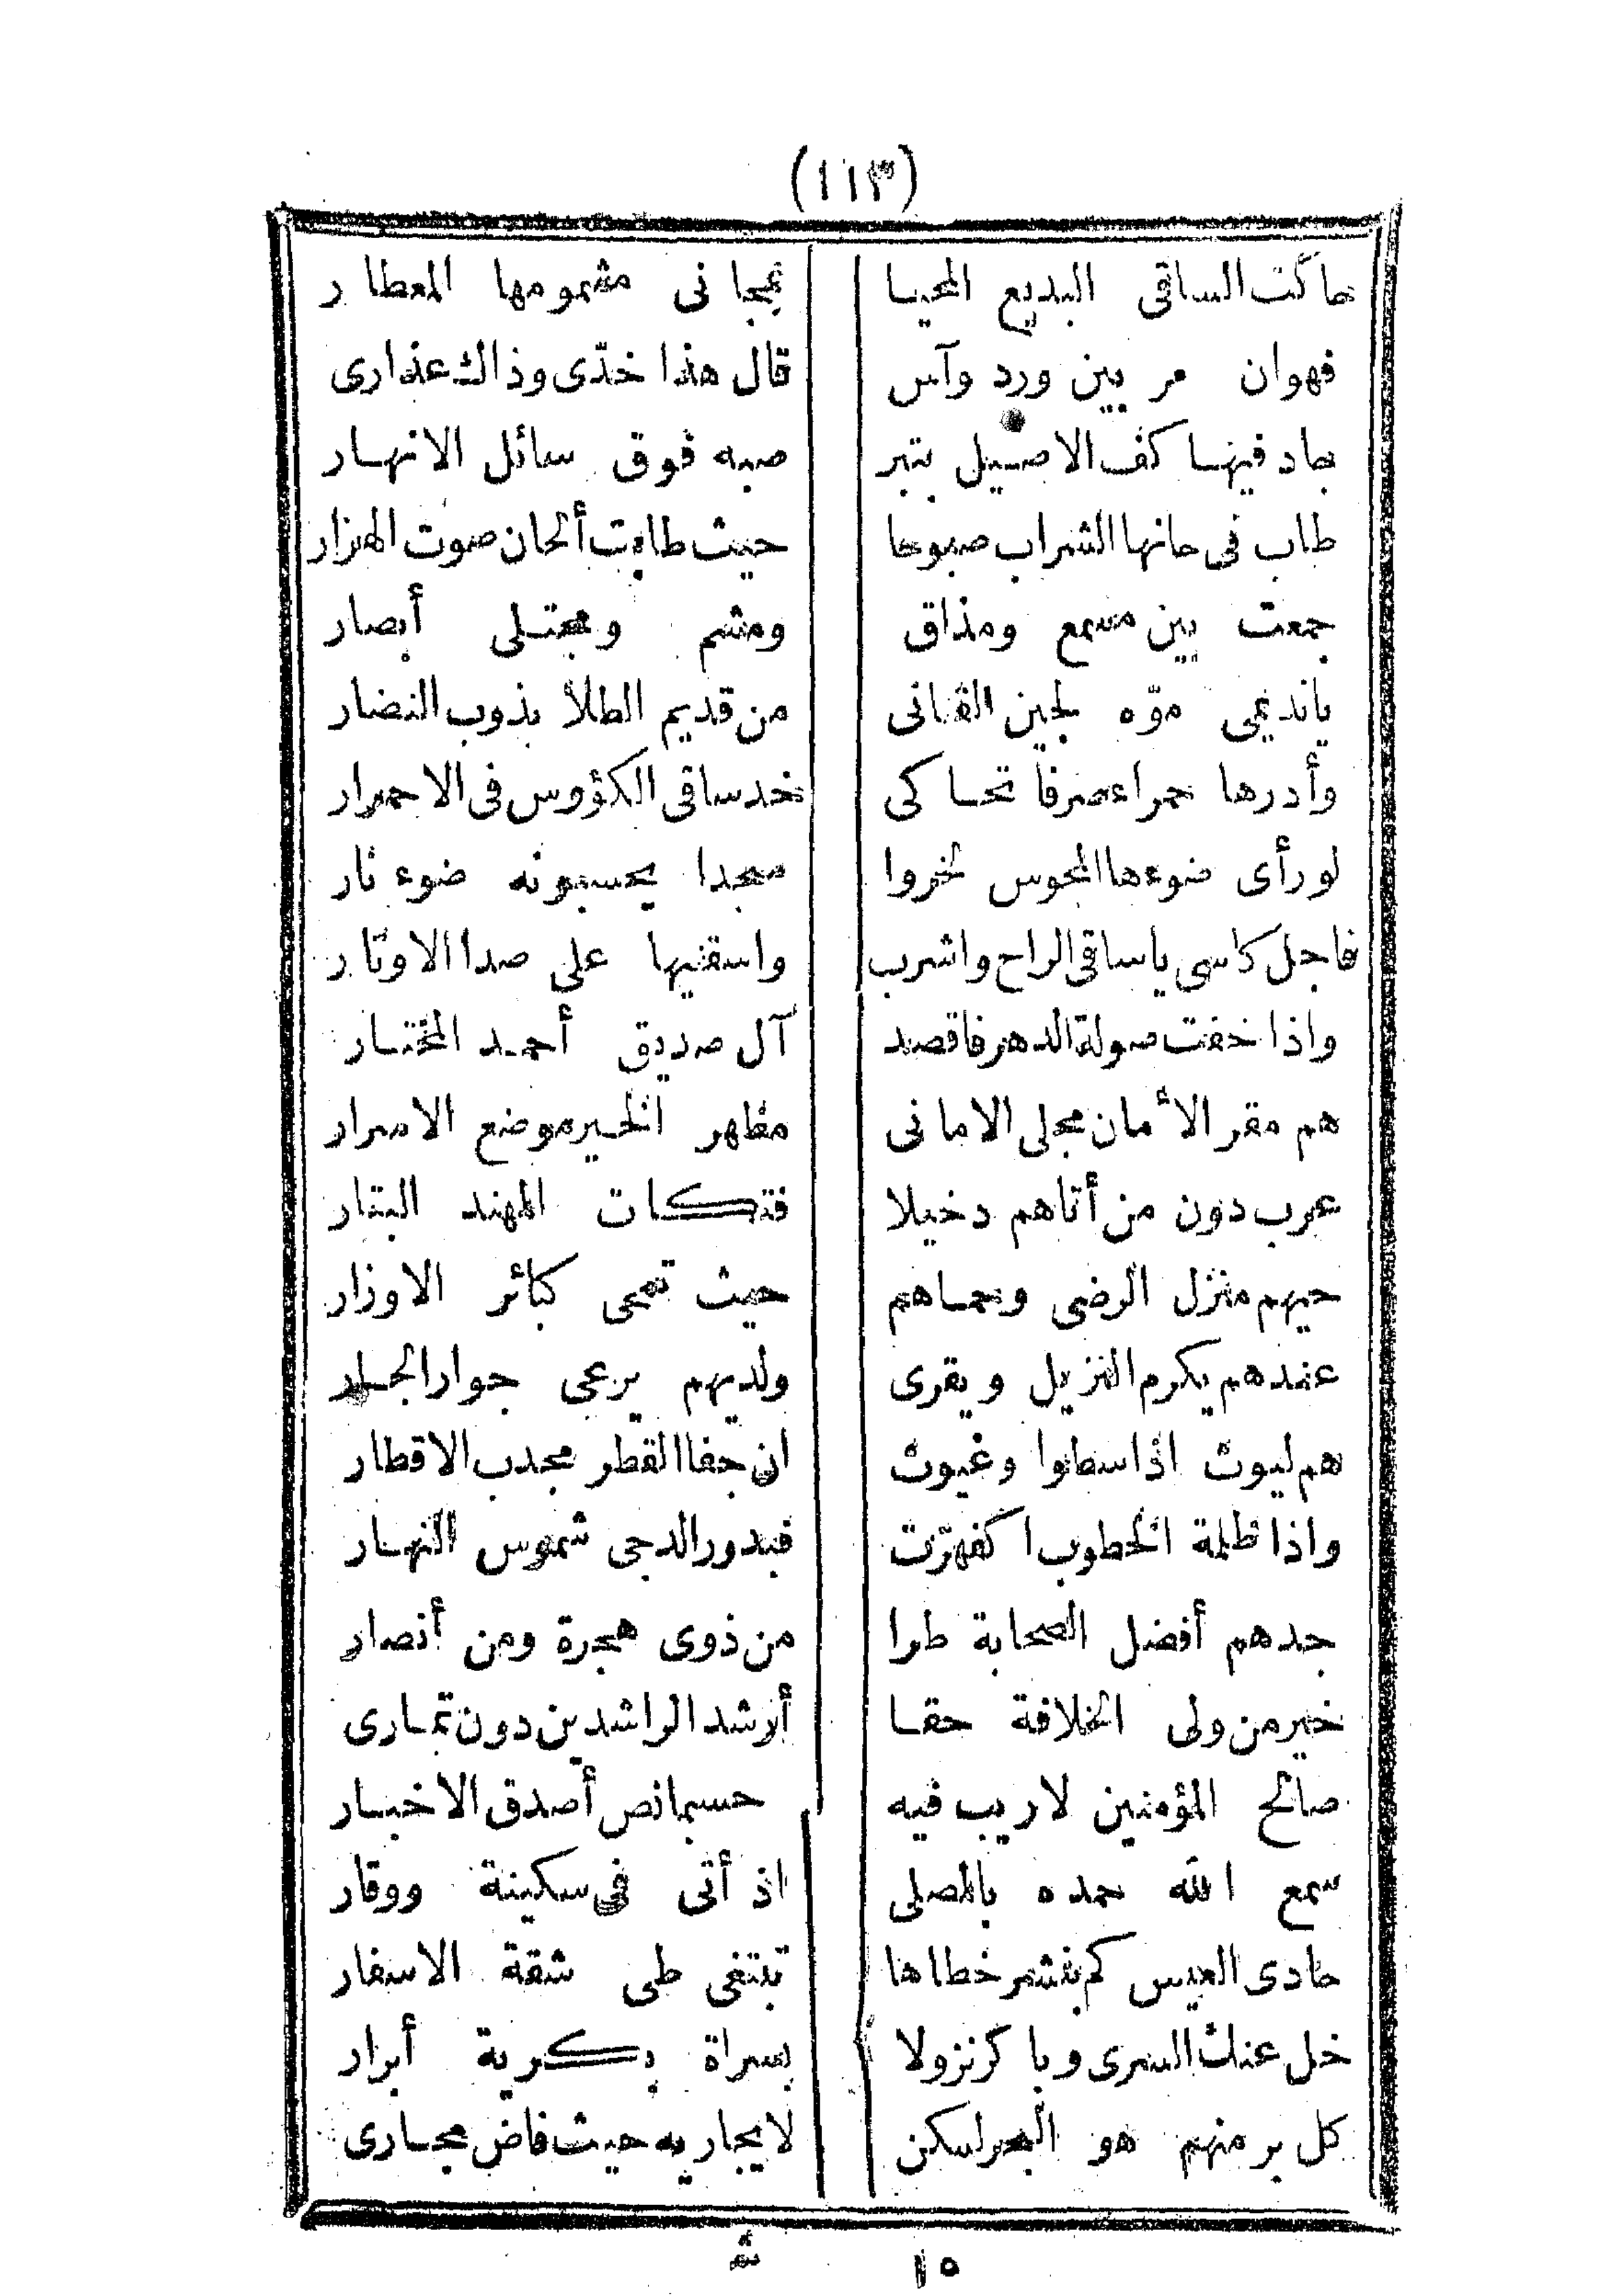 (١١٣)
حاكت الساقى البديع المحيا بمجانى مشمومها المعطار
فهوان مر بين ورد وآس قال هذا خدّى وذاك عذارى
جاد فيها كف الاصيل بتبر صبه فوق سائل الانهار
طاب فى حانها الشراب صبوحا حيث طابت ألحان صوت الهزار
جمعت بين مسمع ومذاق ومشم ومجتلى أبصار
يانديمى موّه لجين القنانى من قديم الطلا بذوب النضار
وأدرها حمراء صرفا تحاكى خد ساقى الكؤوس فى الاحمرار
لو رأى ضوءها المجوس لخروا سجدا يحسبونه ضوء نار
فاجل كاسى ياساقى الراح واشرب واسقنيها على صدا الاوتار
واذا خفت صولة الدهر فاقصد آل صديق أحمد المختار
هم مقر الأمان مجلى الامانى مظهر الخير موضع الاسرار
عرب دون من أتاهم دخيلا فتكات المهند البتار
حيهم منزل الرضى وحماهم حيث تمحى كبائر الاوزار
عندهم يكرم النزيل ويقرى ولديهم يرعى جوار الجار
هم ليوث اذا سطوا وغيوث ان جفا القطر مجدب الاقطار
واذا ظلمة الخطوب اكفهرّت فبدور الدجى شموس النهار
جدهم أفضل الصحابة طرا من ذوى هجرة ومن أنصار
خير من ولى الخلافة حقا أرشد الراشدين دون تمارى
صالح المؤمنين لاريب فيه حسبما نص أصدق الاخبار
سمع الله حمده بالمصلى اذ أتى فى سكينة ووقار
حادى العيس كم بنشر خطاها تبتغى طى شقة الاسفار
خل عنك السرى وباكر نزولا بسراة بكرية أبرار
كل بر منهم هو البحر لكن لايجاريه حيث فاض مجارى
١٥